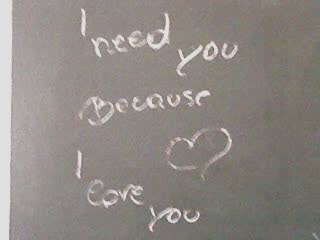 I need you
Because
I love you